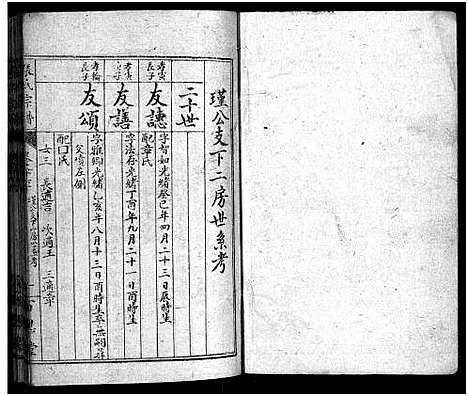 瑾公支下二房世系考
二十世
孝寅長子
友譓
字智如光緒癸巳年四月二十三日辰時生
配章氏
孝寅次子
友譱
字法存光緒丁酉年九月二十一日酉時生
孝倫長子
友頌
字雅卿光緒乙亥年八月十三日酉時生卒無嗣葬
父墳左側
配口氏
女三 長適吉 次適王 三適章
氏宗譜